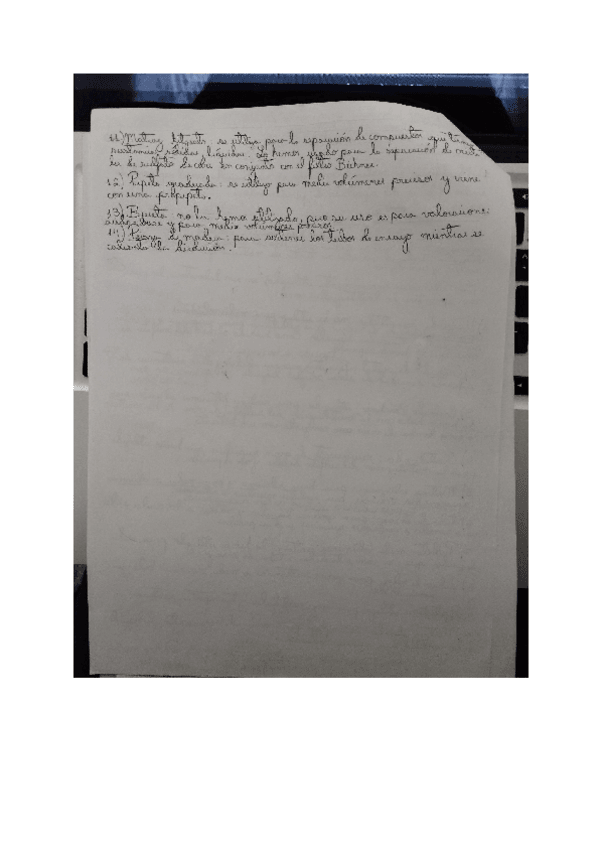 11) Matraz kitasato: se utiliza para la separación de compuestos que tienen
sustancias sólidas líquidas. Lo hemos usado para la separación de
de sulfato de cobre en conjunto con el filtro Büchner.
12) Pipeta graduada: se utiliza para medir volúmenes precisos y viene
con una propipeta.
13) Bureta no la hemos utilizado, pero su uso es para valoraciones
ácido-base y para medir volúmenes precisos.
14) Pinza de madera: para sostener los tubos de ensayo mientras se
calienta la disolución.